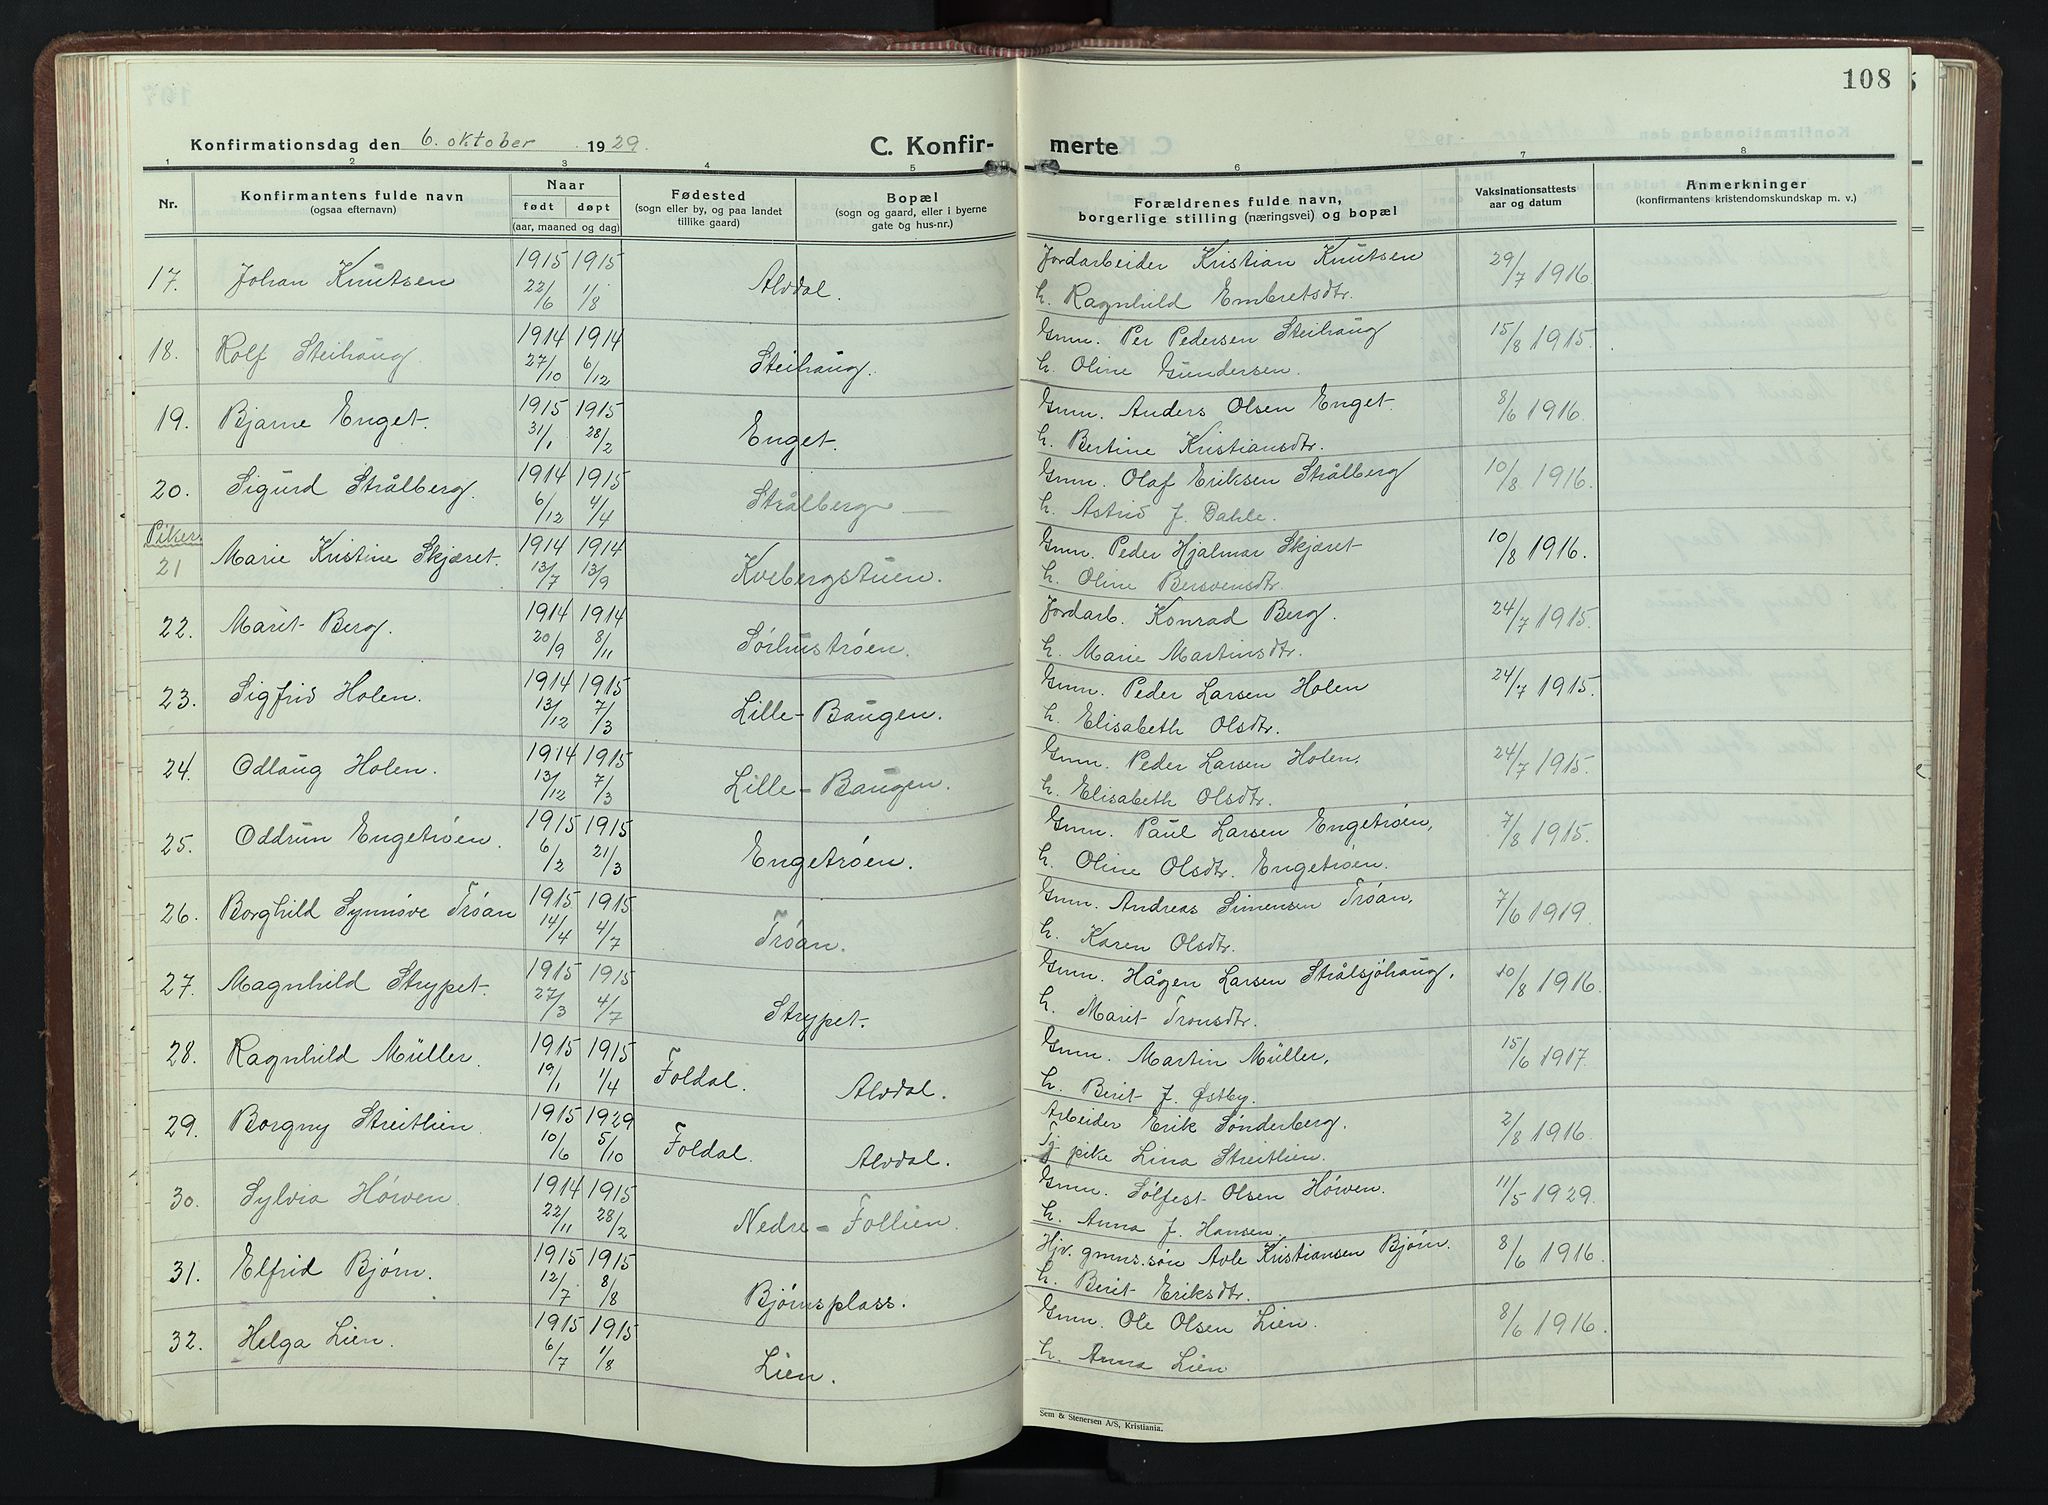 108
Konfirmationsdag den 6. oktober 1929. C. Konfirmerte
1 2 3 4 5 6 7 8
Nr. Konfirmantens fulde navn (ogsaa efternavn) Naar født døpt (aar, maaned og dag) Fødested (sogn eller by, og paa landet tillike gaard) Bopæl (sogn og gaard, eller i byerne gate og hus-nr.) Forældrenes fulde navn, borgerlige stilling (næringsvei) og bopæl Vaksinationsattests aar og datum Anmerkninger (konfirmantens kristendomskundskap m. v.)
17. Johan Knutsen 1915 22/6 1915 1/8 Alvdal. Jordarbeider Kristian Knutsen 29/7 1916
h. Ragnhild Embretsdtr.
18. Rolf Steihaug. 1914 27/10 1914 6/12 Steihaug. Gmn. Per Pedersen Steihaug 15/8 1915.
h. Oline Gundersen.
19. Bjarne Enget. 1915 31/1 1915 28/2 Enget. Gmn. Anders Olsen Enget. 8/6 1916.
h. Bertine Kristiansdtr.
20. Sigurd Strålberg. 1914 6/12 1915 4/4 Strålberg Gmn. Olaf Eriksen Strålberg 10/8 1916.
h. Astrid J. Dahle.
Piker.
21 Marie Kristine Skjæret. 1914 13/7 1914 13/9 Kvebergstuen. Gmn. Peder Hjalmar Skjæret 10/8 1916.
h. Oline Bersvensdtr.
22. Marit Berg. 1914 20/9 1914 8/11 Sørhustrøen. Jordarb. Konrad Berg. 24/7 1915.
h. Marie Martinsdtr.
23. Sigfrid Holen. 1914 13/12 1915 7/3 Lille-Baugen. Gmn. Peder Larsen Holen 24/7 1915.
h. Elisabeth Olsdtr.
24. Odlaug Holen. 1914 13/12 1915 7/3 Lille-Baugen. Gmn. Peder Larsen Holen. 24/7 1915.
h. Elisabeth Olsdtr.
25. Oddrun Engetrøen. 1915 6/2 1915 21/3 Engetrøen. Gmn. Paul Larsen Engetrøen, 7/8 1915.
h. Oline Olsdtr. Engetrøen.
26. Borghild Synnøve Trøan 1915 14/4 1915 4/7 Trøan. Gmn. Andreas Simensen Trøan, 7/6 1919.
h. Karen Olsdtr.
27. Magnhild Strypet. 1915 27/3 1915 4/7 Strypet. Gmn. Hågen Larsen Strålsjøhaug, 10/8 1916.
h. Marit Tronsdtr.
28. Ragnhild Müller. 1915 19/1 1915 1/4 Foldal. Alvdal. Gmn. Martin Müller, 15/6 1917.
h. Berit J. Østby.
29. Borgny Streitlien. 1915 10/6 1929 5/10 Foldal. Alvdal. Arbeider Erik Sønderberg. 2/8 1916.
Tj. pike Lina Streitlien.
30. Sylvia Høwen. 1914 22/11 1915 28/2 Nedre-Follien. Gmn. Sølfest Olsen Høwen. 11/5 1929.
h. Anna J. Hansen.
31. Elfrid Bjørn. 1915 12/7 1915 8/8 Bjørnsplass. Hjv. gmns.søn Avle Kristiansen Bjørn. 8/6 1916.
h. Berit Eriksdtr.
32. Helga Lien. 1915 6/7 1915 1/8 Lien. Gmn. Ole Olsen Lien. 8/6 1916.
h. Anna Lien
Sem & Stenersen A/S, Kristiania.